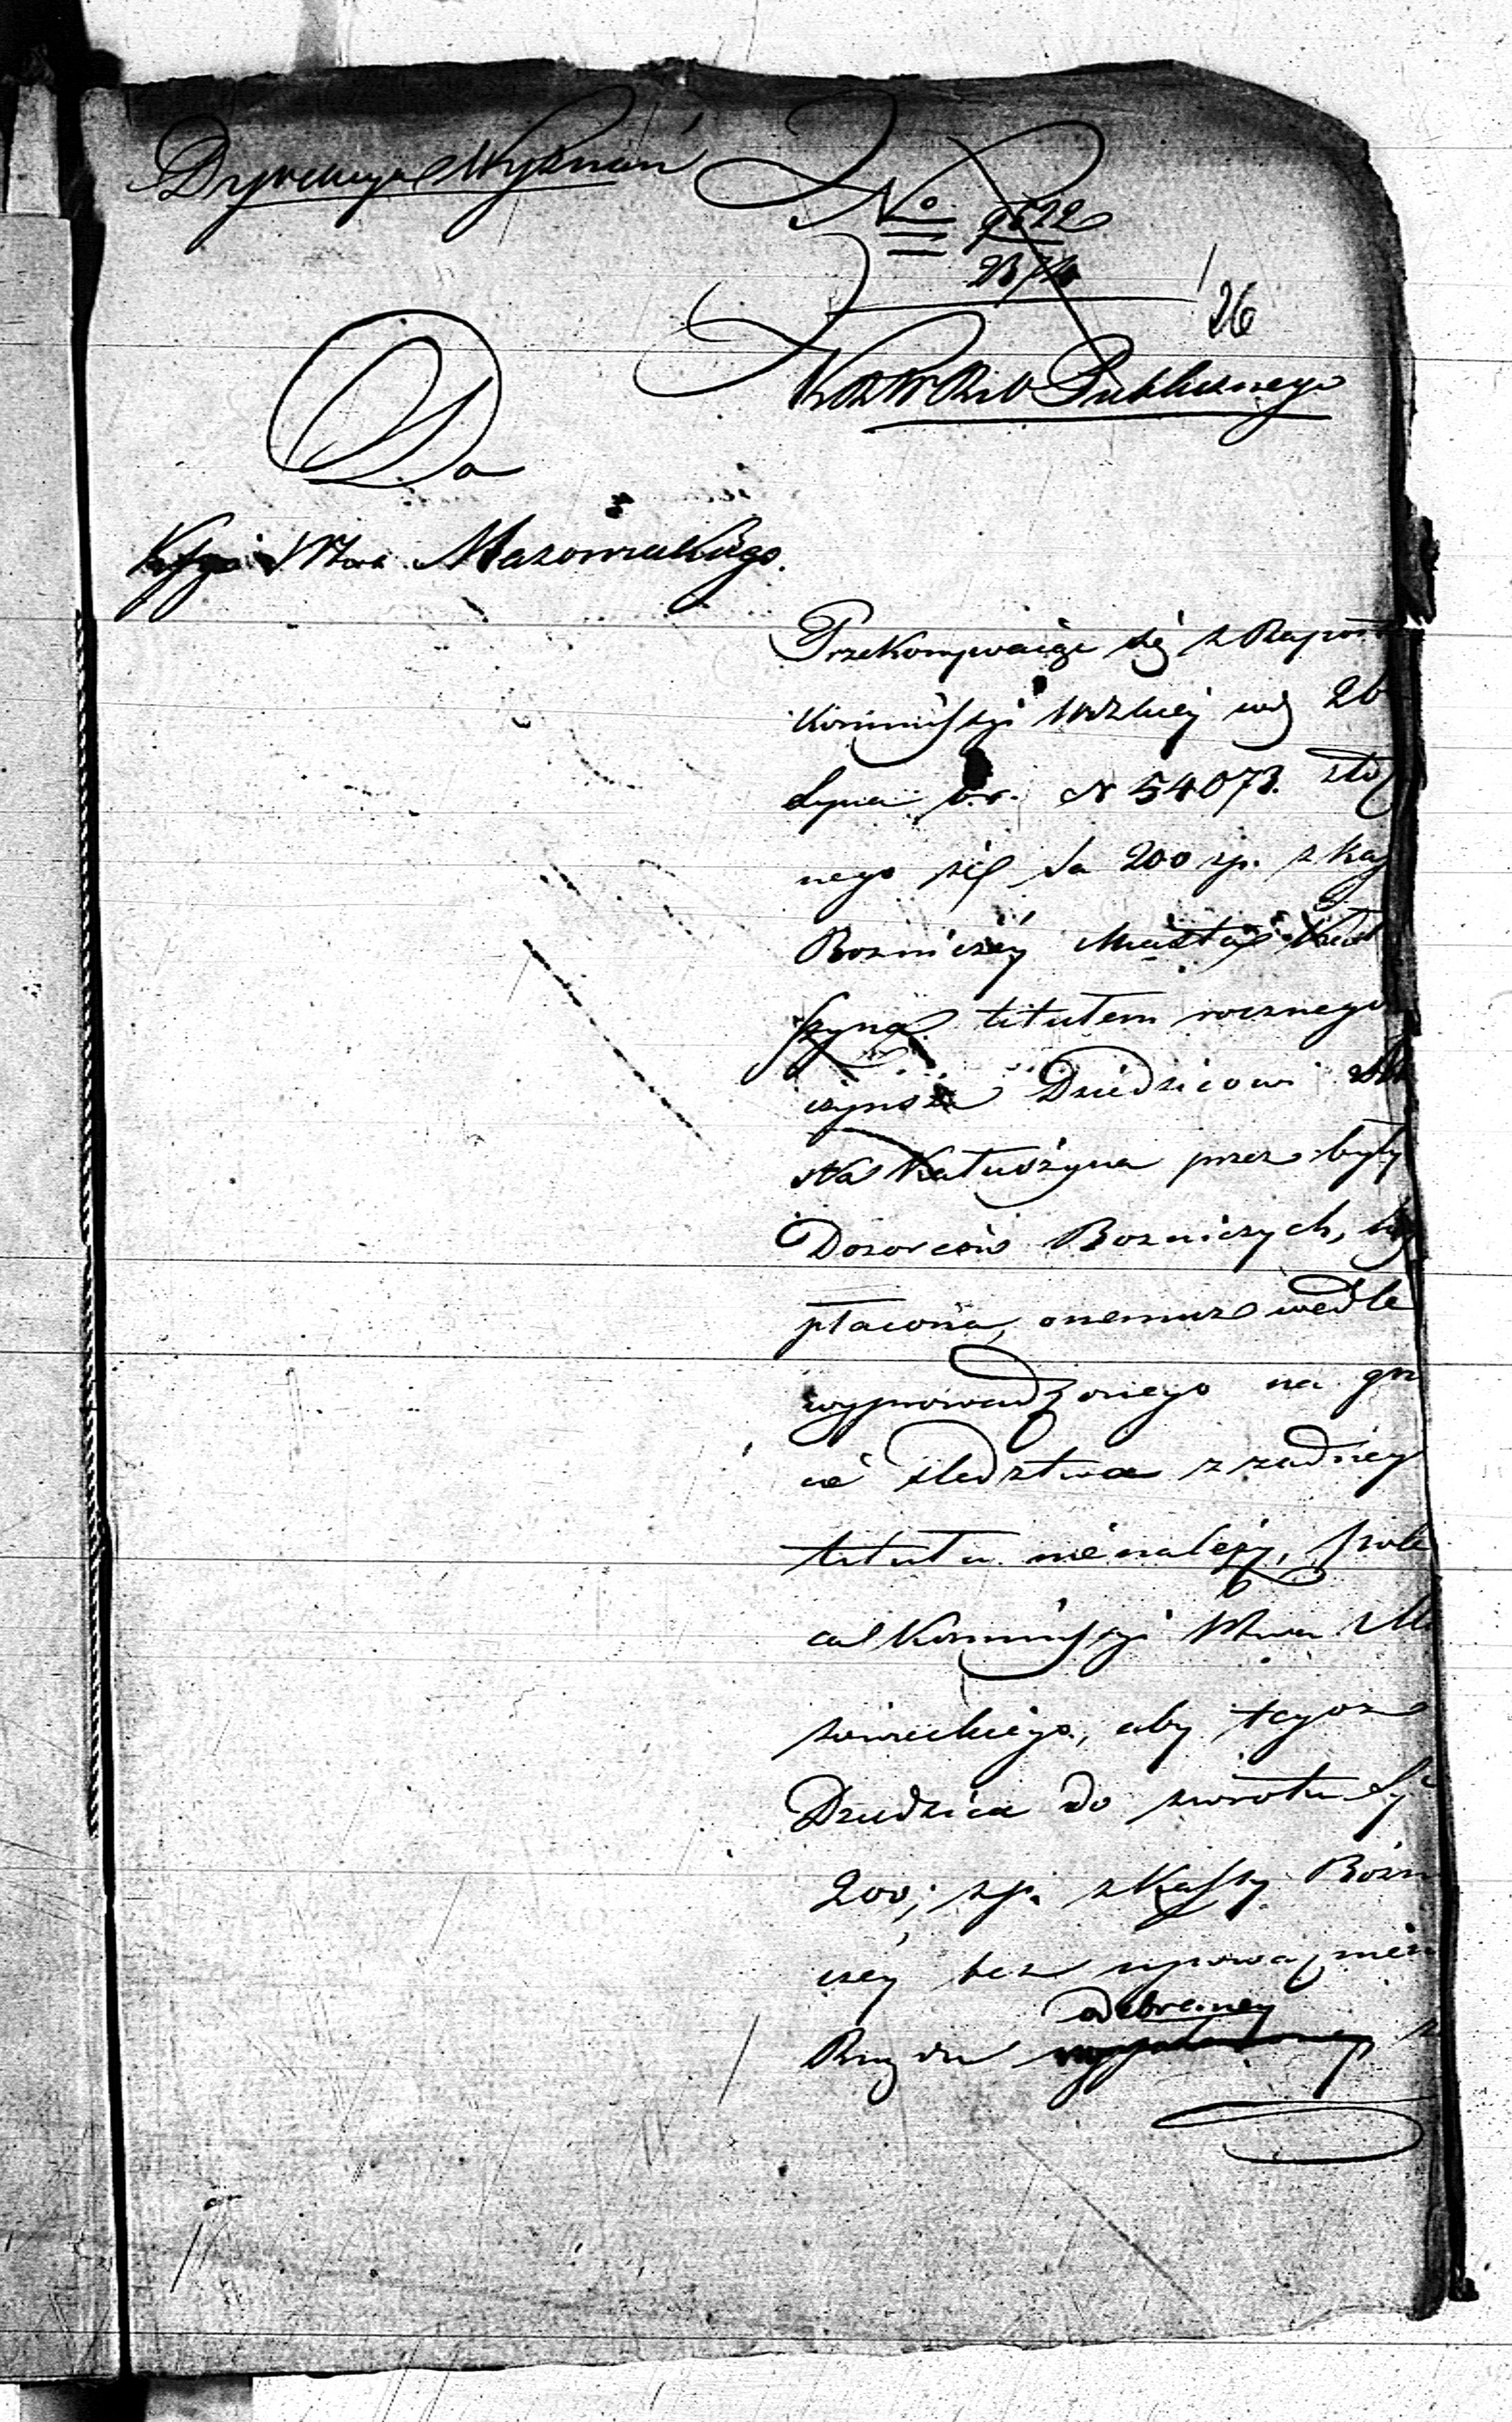 Dyrekcya Wyznań
No 9522
23714
26
K.R.W.R.i O. Publicznego
Do
Kssyi Wtwa Mazowieckiego.
Przekonywaiąc się z Rapo
Kommissyi Wdzkiey wdz 26
Lipca b.r. N 54073. zło
nego iż Sa 200 zp. z Ka
Bozniczey Miasta Kału
szyna titułem rocznego
czynszu Dziedzicowi
sta Kałuszyna przez były
Dozorców Bozniczych,
płacona, onemuże wedle
wyprowadzonego na gr
cie śledztwa z żadney
titułu nienależy, pole
ca Kommissyi Wtwa Ma
zowieckiego, aby tegoż
Dziedzica do zwrotu
200; zp. z Kassy Bozni
czey bez upoważnien
odebraney
Rządu